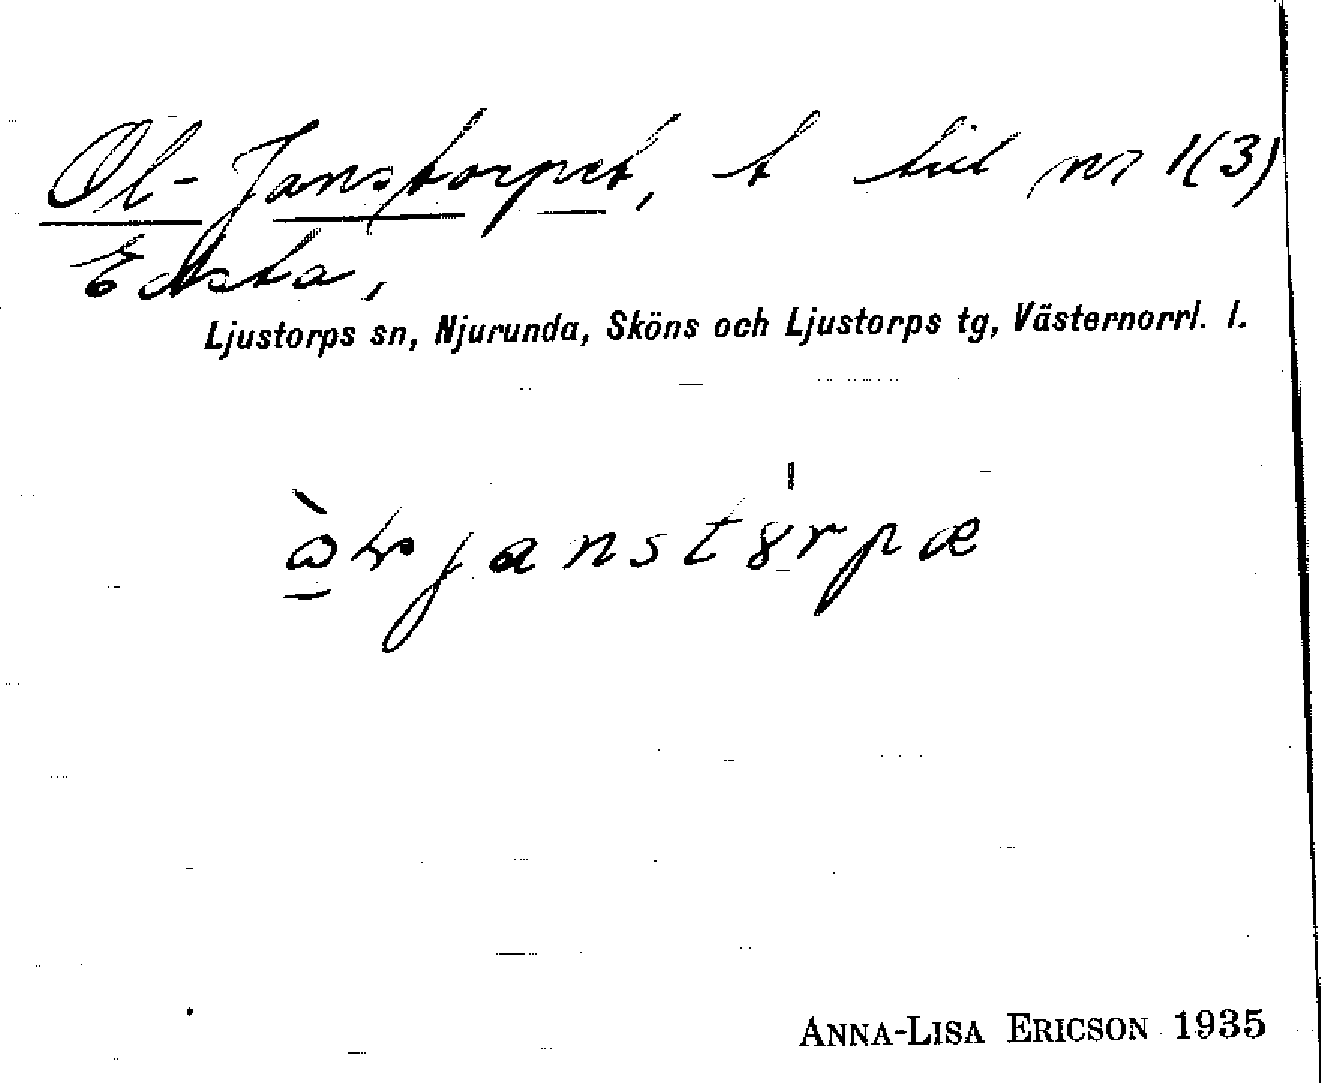 Ol-Janstorpet, t till nr 1(3)
Edsta,
Ljustorps sn, Njurunda, Sköns och Ljustorps tg, Västernorrl. l.
ANNA-LISA ERICSON 1935